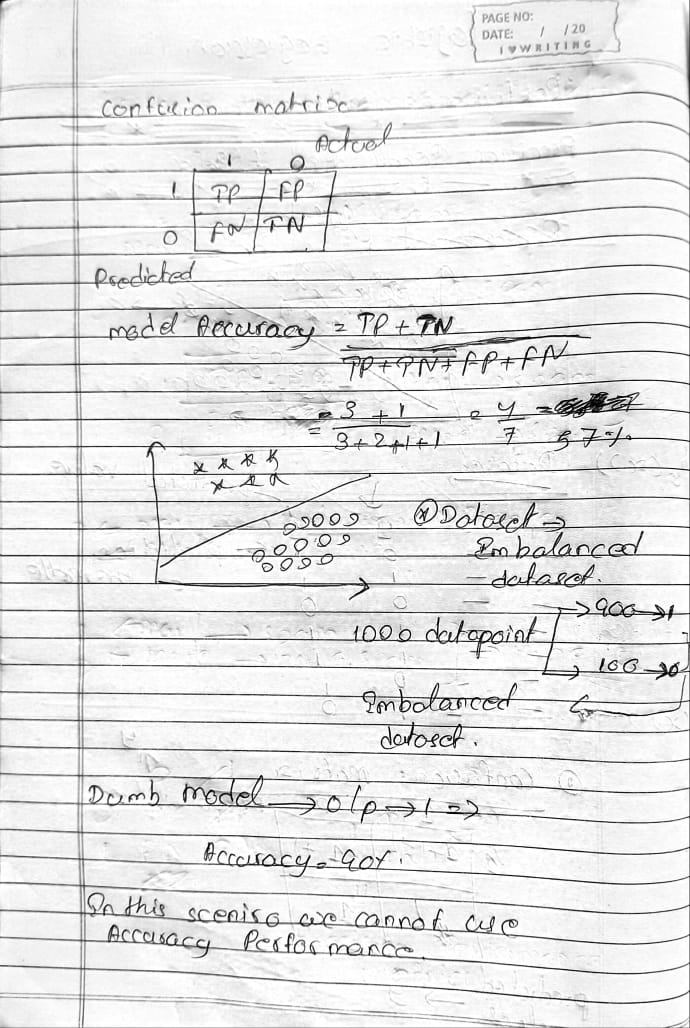 PAGE NO:
DATE: / /20
I ♥ WRITING
Confusion matrix
Actual
1 0
1 TP FP
0 FN TN
Predicted
model Accuracy = TP + TN
TP + TN + FP + FN
= 3 + 1 = 4 =
3 + 2 + 1 + 1 7 57%
Dataset →
Imbalanced
dataset.
→ 900 → 1
1000 datapoint
→ 100 → 0
Imbalanced
dataset.
Dumb model → o/p → 1 =>
Accuracy = 90%.
In this sceniro we cannot use
Accuracy Performance.